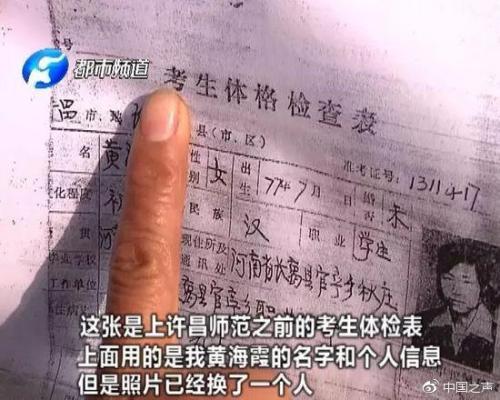 都市频道
考生体格检查表
市、 县(市、区)
名 黄 性别 女 出生 77年9月 日 婚否 未
准考证号: 1311417
化程度 初 民族 汉 职业 学生
现住所及通讯处 河南省长葛县官亭乡秋庄
毕业学校
工作单位 葛县官亭乡
这张是上许昌师范之前的考生体检表
上面用的是我黄海霞的名字和个人信息
但是照片已经换了一个人
@中国之声